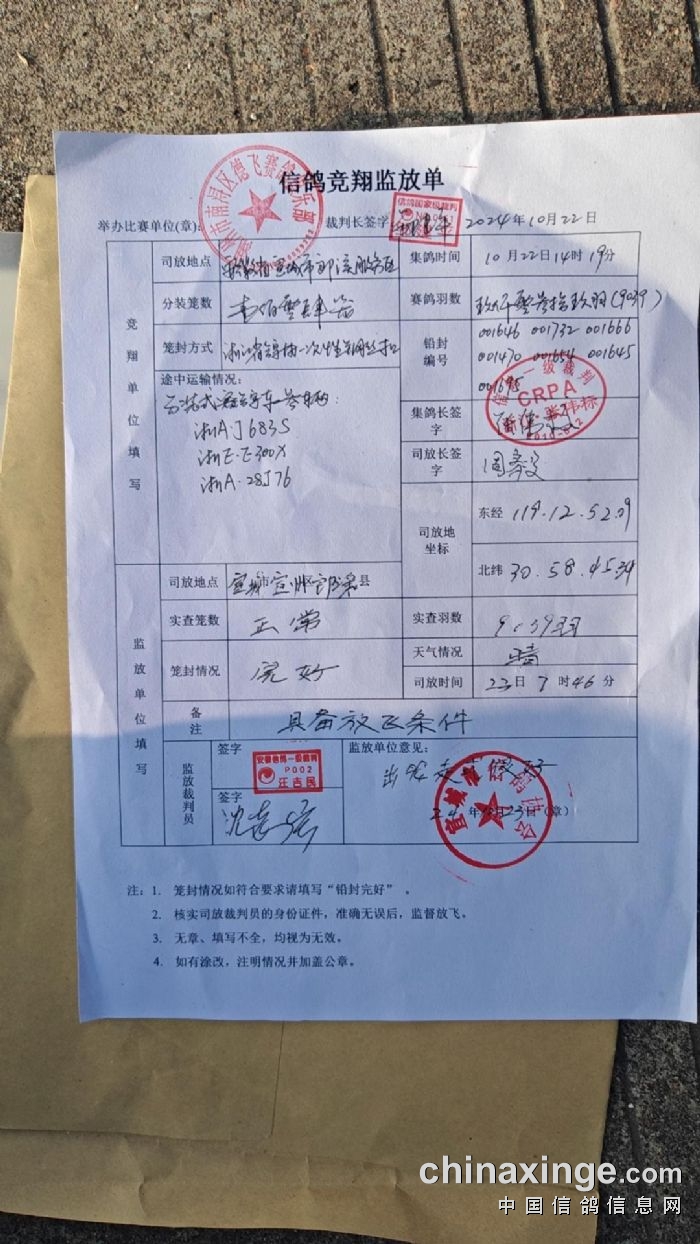 信鸽竞翔监放单
举办比赛单位(章): 裁判长签字 2024年10月22日
信鸽国家级裁判
竞翔单位填写
司放地点 安徽省宣城市 服务区 集鸽时间 10月22日14时19分
分装笼数 赛鸽羽数 玖仟零叁拾玖羽(9039)
笼封方式 浙江省 一次性 铅封编号 001646 001732 001666
001470 001654 001645
途中运输情况:
浙A·J6835
浙E·E300X
浙A·28J76
一级裁判
CRPA
集鸽长签字
司放长签字
司放地坐标 东经 119.12.52.09
北纬 30.58.45.34
监放单位填写
司放地点 宣城市宣州区 县
实查笼数 正常 实查羽数 9039羽
笼封情况 完好 天气情况 晴
司放时间 23日7时46分
备注 具备放飞条件
监放裁判员 签字 监放单位意见:
安徽信鸽一级裁判
P002
汪吉民
签字
24年10月23日(章)
宣城市信鸽协会
注:1. 笼封情况如符合要求请填写“铅封完好”。
2. 核实司放裁判员的身份证件，准确无误后，监督放飞。
3. 无章、填写不全，均视为无效。
4. 如有涂改，注明情况并加盖公章。
chinaxinge.com
中国信鸽信息网